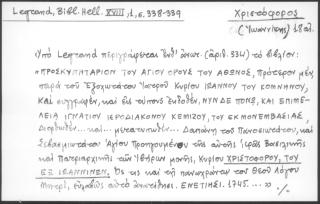 Legrand, Bibl. Hell. XVIII, 1, σ. 338-339
Χριστόφορος
(Ἰωαννίτης)
Ὑπὸ Legrand περιγράφεται (ἀριθ. 334) τὸ βιβλίον:
«ΠΡΟΣΚΥΝΗΤΑΡΙΟΝ ΤΟΥ ΑΓΙΟΥ ΟΡΟΥΣ ΤΟΥ ΑΘΩΝΟΣ, πρότερον μὲν,
παρὰ τοῦ Ἐξοχωτάτου Ἰατροῦ Κυρίου ΙΩΑΝΝΟΥ ΤΟΥ ΚΟΜΝΗΝΟΥ,
καὶ συγγραφὲν, καὶ εἰς τύπους ἐκδοθέν, ΝΥΝ ΔΕ ΠΟΝΩ, ΚΑΙ ΕΠΙΜΕ-
ΛΕΙΑ ΙΓΝΑΤΙΟΥ ΙΕΡΟΔΙΑΚΟΝΟΥ ΧΕΜΙΖΟΥ, ΤΟΥ ΕΚ ΜΟΝΕΜΒΑΣΙΑΣ,
Διορθωθὲν... καὶ... μετατυπωθὲν... Δαπάνῃ τοῦ Πανοσιωτάτου, καὶ
Σεβασμιωτάτου Ἁγίου Προηγουμένου τῆς αὐτῆς Ἱερᾶς Βασιλικῆς
καὶ Πατριαρχικῆς τῶν Ἰβήρων μονῆς, Κυρίου ΧΡΙΣΤΟΦΟΡΟΥ, ΤΟΥ
ΕΞ ΙΩΑΝΝΙΝΩΝ. Ὃς τις καὶ τῇ παναχράντῳ τοῦ Θεοῦ Λόγου
Μητρὶ, εὐλαβῶς αὐτὸ ἀνατέθησι. ΕΝΕΤΙΗΣΙ. 1745. ... »